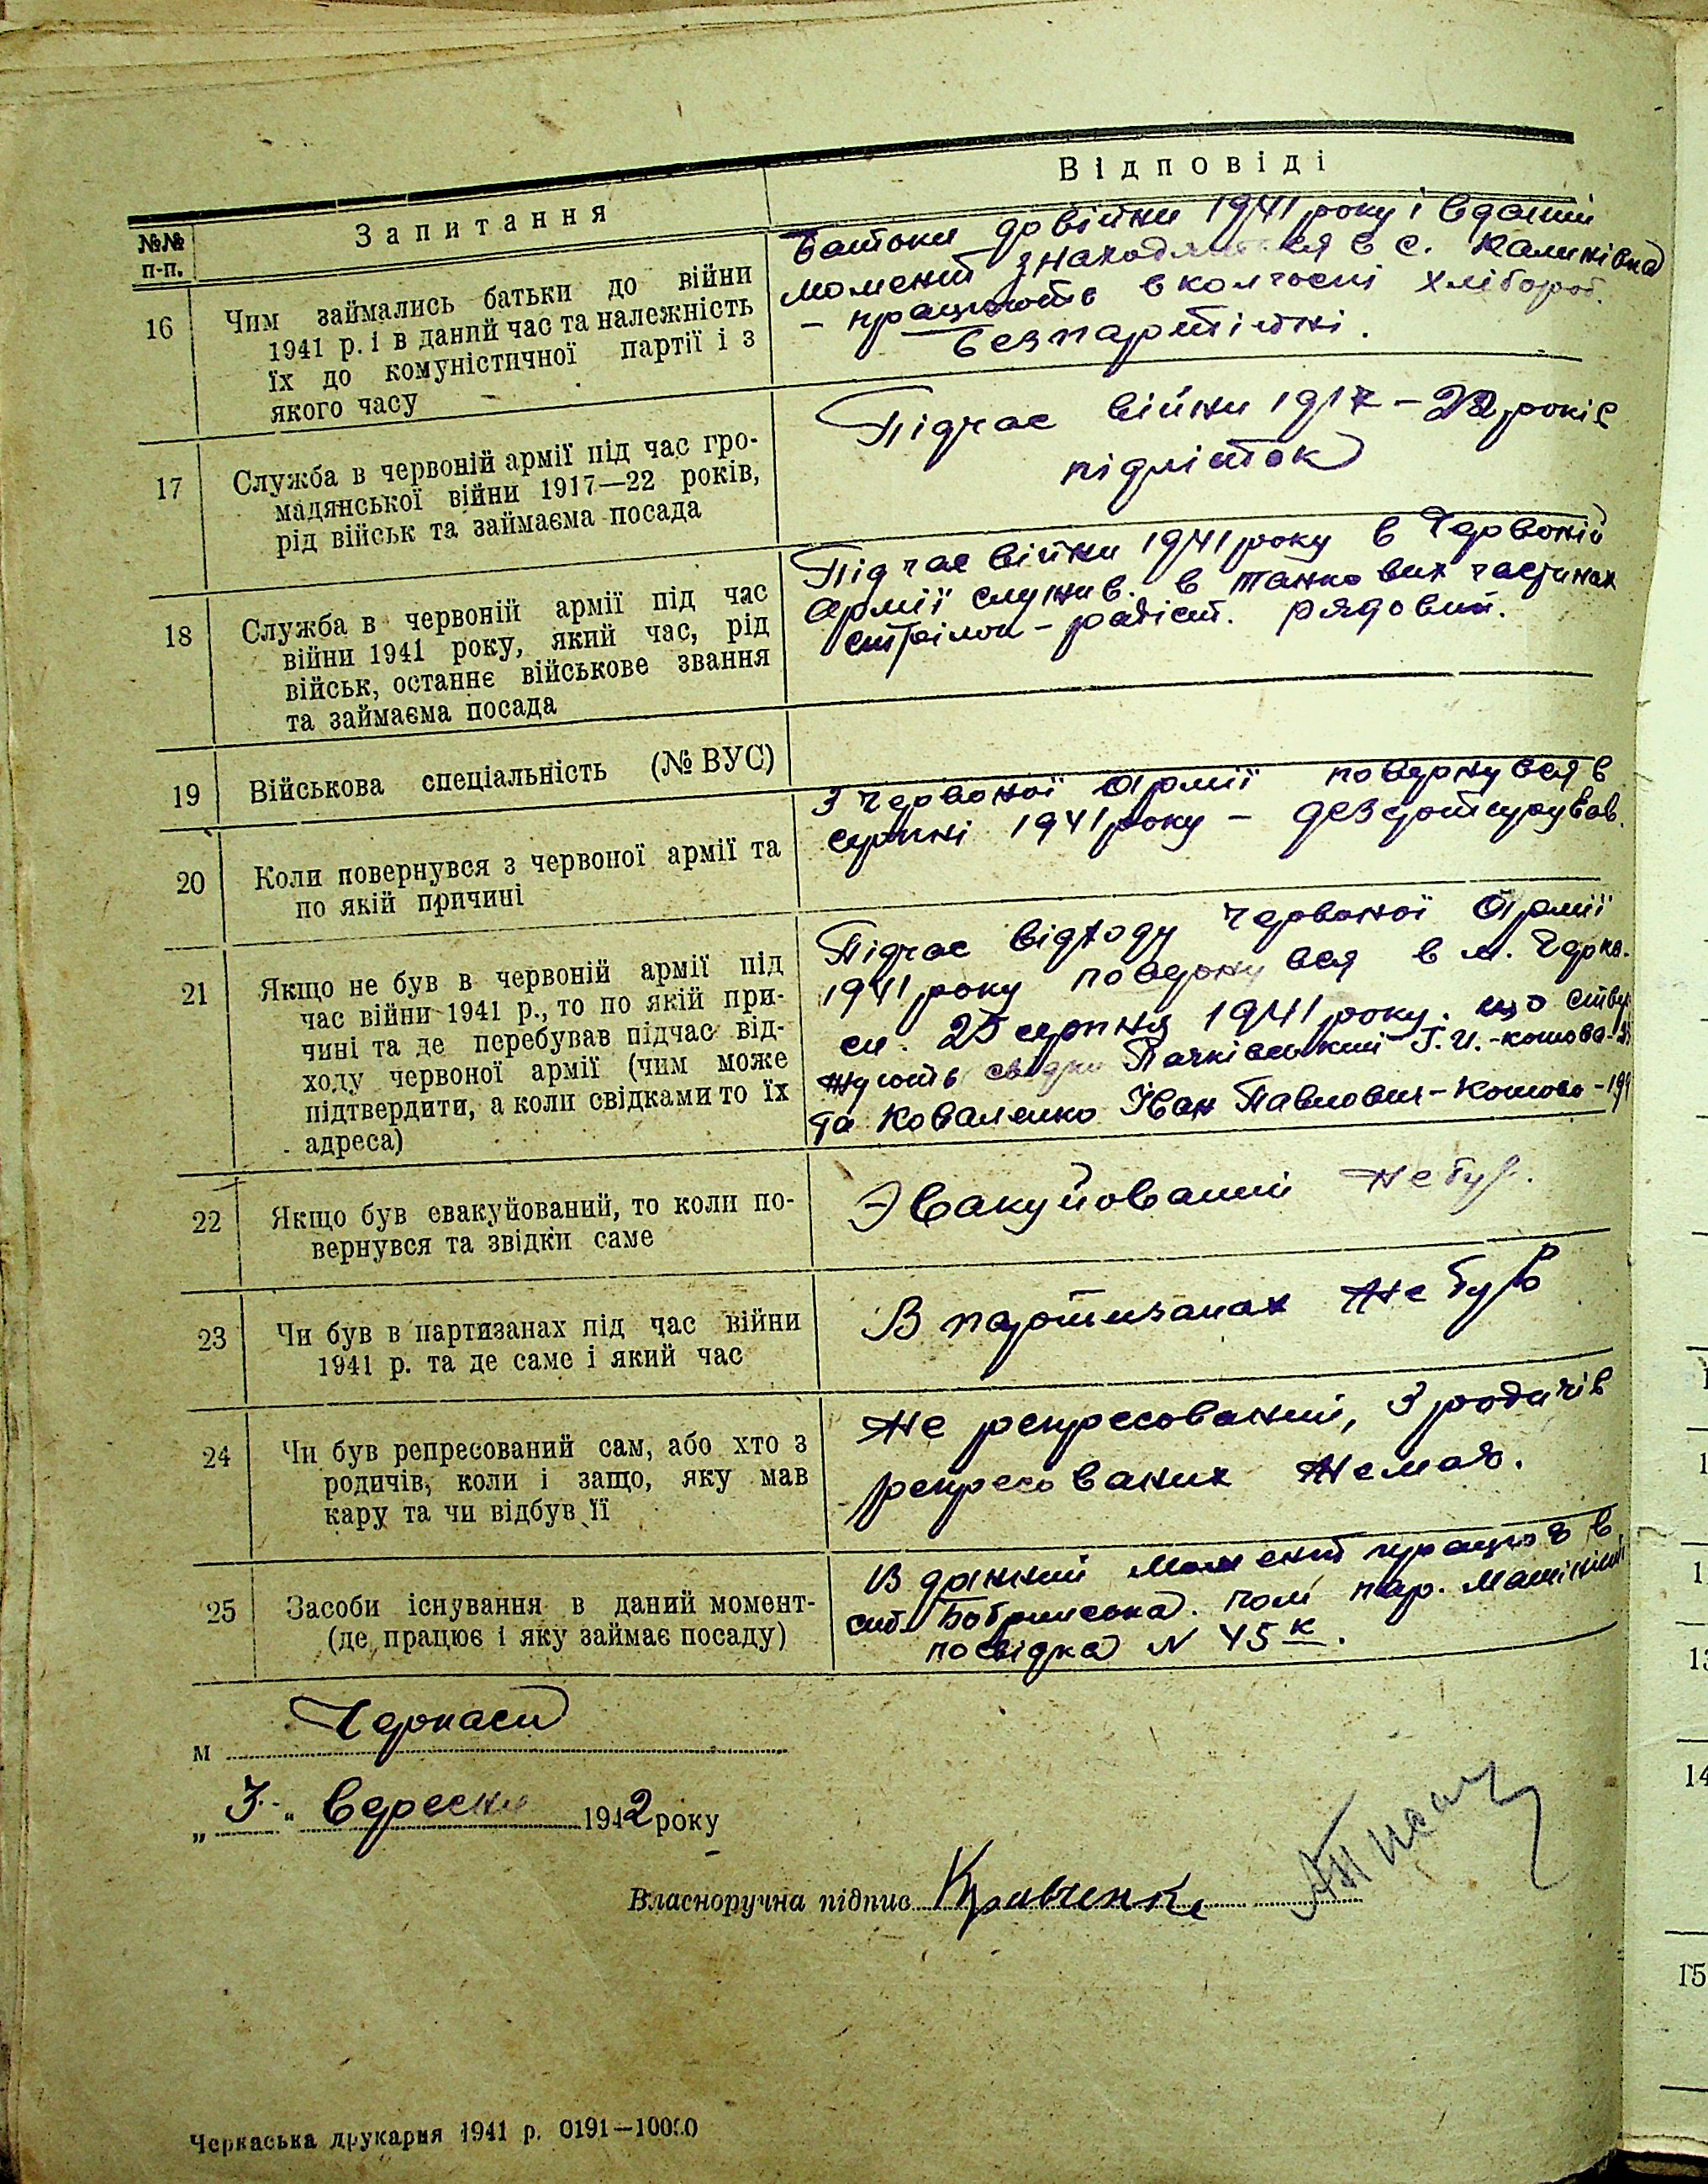 №№ п-п.
Запитання
Відповіді
16
Чим займались батьки до війни
1941 р. і в даний час та належність
їх до комуністичної партії і з
якого часу
Батьки до війни 1941 року і в даний
момент знаходяться в с. Калинівка
– працюють в колгоспі хлібороб.
безпартійні.
17
Служба в червоній армії під час гро-
мадянської війни 1917—22 років,
рід військ та займаєма посада
Підчас війни 1917 – 22 років
підліток
18
Служба в червоній армії під час
війни 1941 року, який час, рід
військ, останнє військове звання
та займаєма посада
Підчас війни 1941 року в Червоній
армії служив. в танкових частинах
стрілок – радіст. рядовий.
19
Військова спеціальність (№ ВУС)
20
Коли повернувся з червоної армії та
по якій причині
З Червоної Армії повернувся в
серпні 1941 року – дезертирував.
21
Якщо не був в червоній армії під
час війни 1941 р., то по якій при-
чині та де перебував підчас від-
ходу червоної армії (чим може
підтвердити, а коли свідками то їх
адреса)
Підчас відходу Червоної Армії
1941 року повернувся в м. Черка-
си. 25 серпня 1941 року. що ствер
жують свідки І. И. -
та Коваленко Іван Павлович –
22
Якщо був евакуйований, то коли по-
вернувся та звідки саме
Эвакуйований не був.
23
Чи був в партизанах під час війни
1941 р. та де саме і який час
В партизанах не був
24
Чи був репресований сам, або хто з
родичів, коли і защо, яку мав
кару та чи відбув її
Не репресований, з родичів
репресованих немає.
25
Засоби існування в даний момент-
(де працює і яку займає посаду)
В данний момент працює в
ст. Бобринська. пом. пар. Машініста
посвідка N 45 к.
м Черкаси
„ 3 " вересня 1942 року
Власноручна підпис Кривченко
Черкаська друкарня 1941 р. 0191—10000